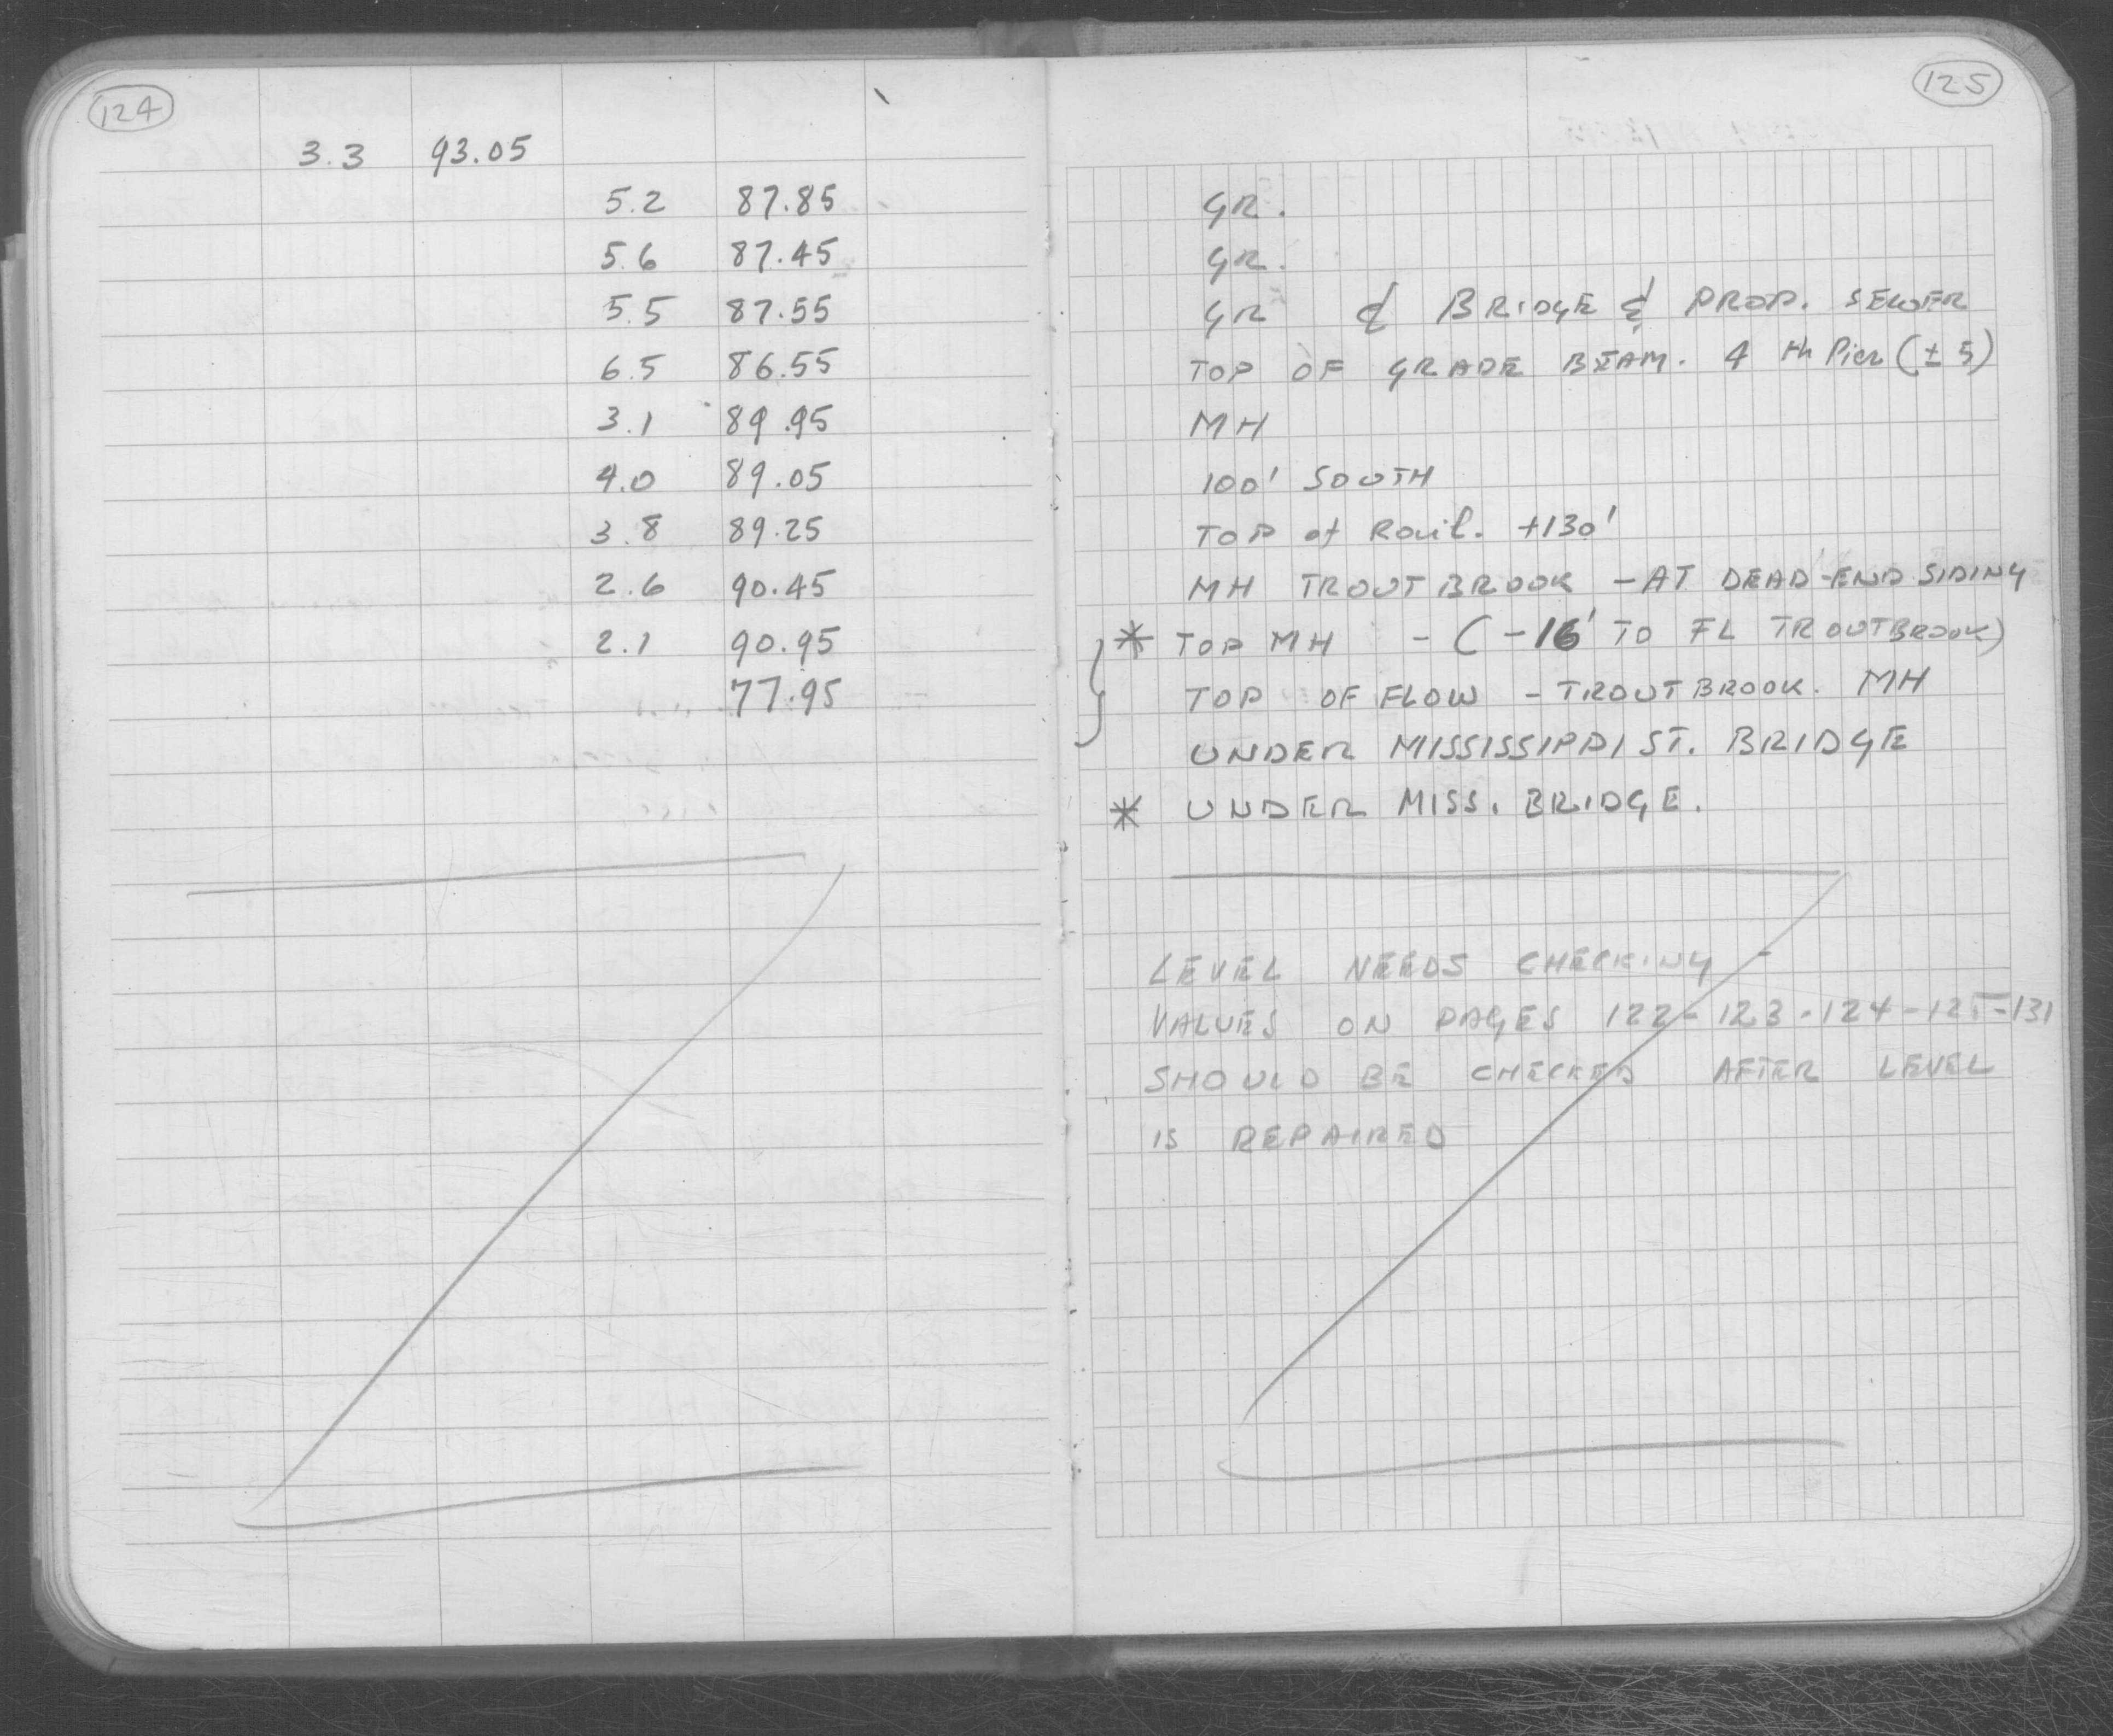 124
3.3 93.05
5.2 87.85
5.6 87.45
5.5 87.55
6.5 86.55
3.1 89.95
4.0 89.05
3.8 89.25
2.6 90.45
2.1 90.95
77.95
125
GR.
GR.
GR ₵ BRIDGE ₵ PROP. SEWER
TOP OF GRADE BEAM. 4 th Pier (± 5)
MH
100' SOUTH
TOP of Rail. +130'
MH TROUT BROOK - AT DEAD-END SIDING
* TOP MH - (-16' TO FL TROUTBROOK)
TOP OF FLOW - TROUT BROOK. MH
UNDER MISSISSIPPI ST. BRIDGE
* UNDER MISS. BRIDGE.
LEVEL NEEDS CHECKING -
VALUES ON PAGES 122-123-124-125-131
SHOULD BE CHECKED AFTER LEVEL
IS REPAIRED